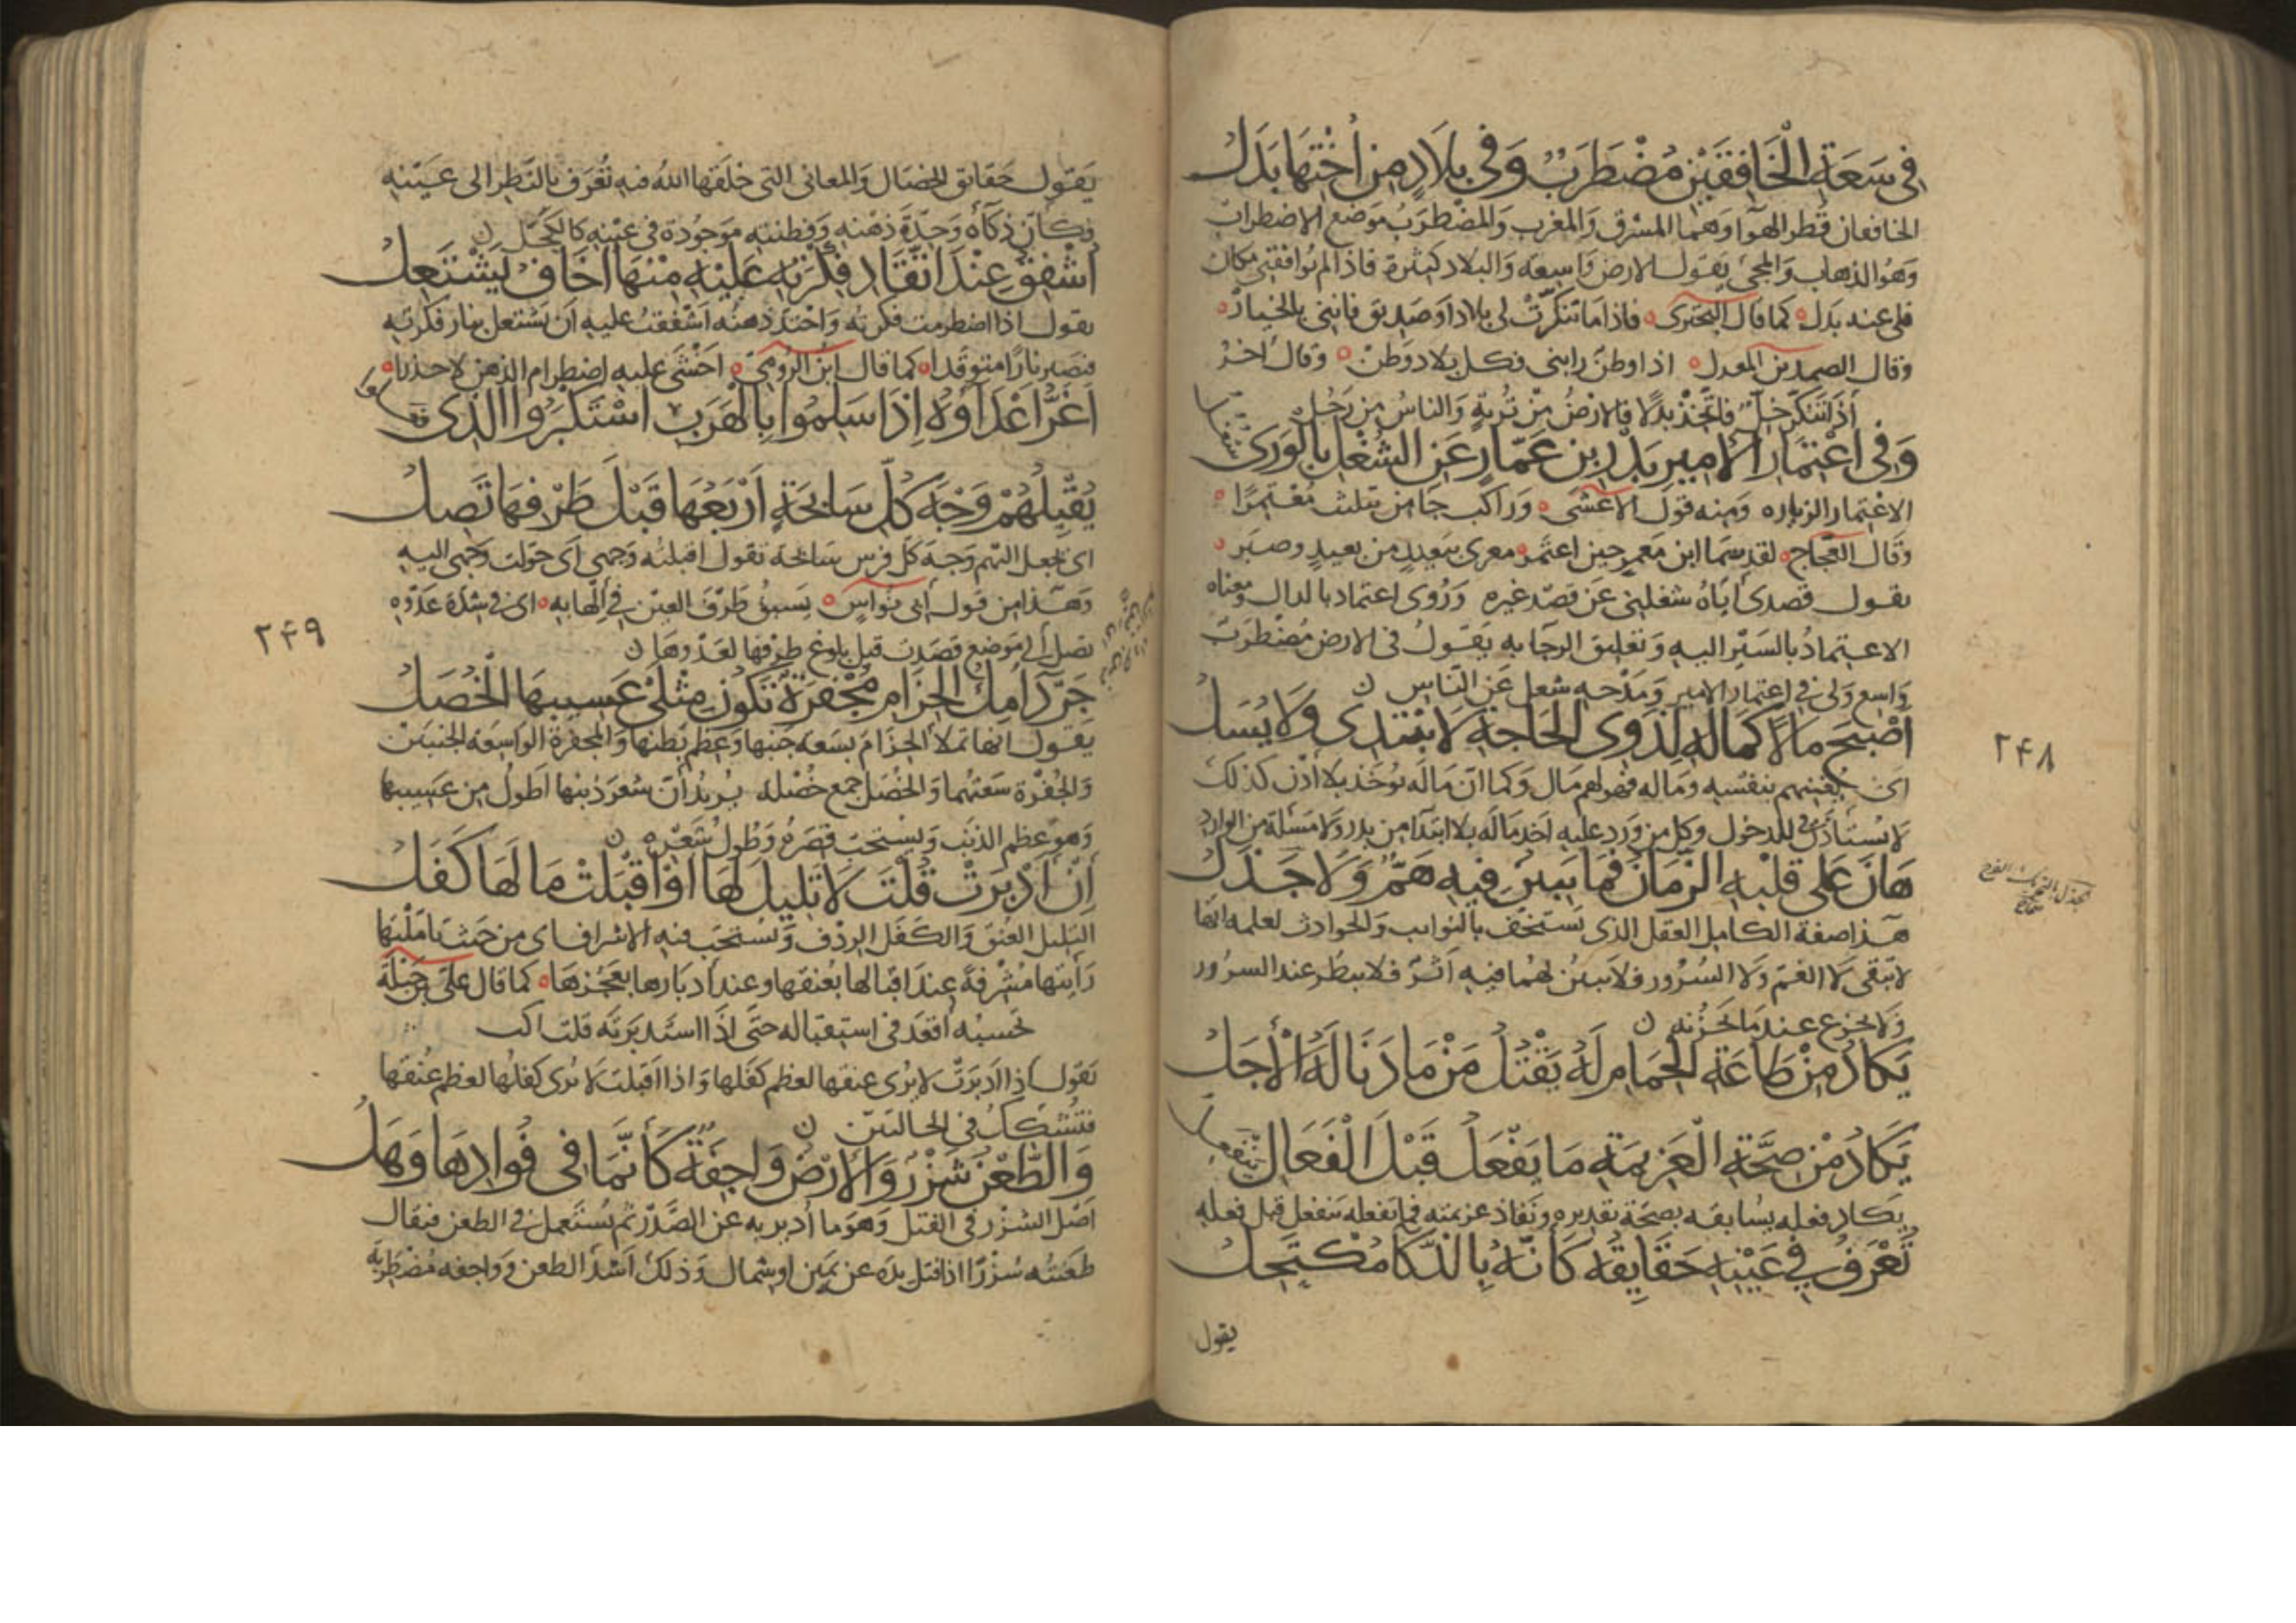 في سَعَةِ الْخَافِقَيْنِ مُضْطَرَبٌ وَفي بِلَادٍ مِنْ اُخْتِهَا بَدَلُ
الخافقان قطر الهوآ وهما المشرق والمغرب والمضطرب موضع الاضطراب
وهو الذهاب والمجئ يقول الارض واسعة والبلاد كثيرة فاذا لم توافقني مكان
فلي عنه بدل كما قال البحترى فاذا ما تنكرت لي بلاد او صديق فانني بالخيار
وقال الصمد بن المعدل اذا وطن رابني فكل بلاد وطن وقال اخر
اذا تنكر خل فاتخذ بدلا فالارض من تربة والناس من رجل
وَفي اعْتِمَارِ الْاَمِيرِ بَدْرِ بْنِ عَمَّارٍ عَنِ الشُّغْلِ بِالْوَرَى شُغُل
الاعتمار الزياره ومنه قول الاعشى وراكب جا من تثليث معتمرا
وقال العجاج لقد سما ابن معمر حين اعتمر مغزى بعيد من بعيد وصبر
يقول قصدي اياه شغلني عن قصد غيره وروى اعتماد بالدال ومعناه
الاعتماد بالسير اليه وتعليق الرجا به يقول في الارض مضطرب
واسع ولي في اعتمار الامير ومدحه شغل عن الناس ن
اَصْبَحَ مَالًا كَمَالِهِ لِذَوِى الْحَاجَةِ لَا يُبْتَدَى وَلَا يُسَلُ
اى يغنيهم بنفسه وماله فهو لهم مال وكما ان ماله يوخذ بلا اذن كذلك
لا يستاذن في الدخول وكل من ورد عليه اخذ ماله بلا ابتدا من بدر ولا مسئلة من الوارد
هَانَ عَلى قَلْبِهِ الزَّمَانُ فَمَا يَبِينُ فِيهِ هَمٌّ وَلَا جَذَلُ
هذا صفة الكامل العقل الذى يستخف بالنوايب والحوادث لعلمه انها
لا تبقى لا الغم ولا السرور فلا يبين لهما فيه اثر فلا يبطر عند السرور
ولا يجزع عند ما يحزنه ن
يَكَادُ مِنْ طَاعَةِ الْحِمَامِ لَهُ يَقْتُلُ مَنْ مَا دَنَا لَهُ الْأَجَلُ
يَكَادُ مِنْ صِحَّةِ الْعَزِيمَةِ مَا يَفْعَلُ قَبْلَ الْفَعَالِ يَنْفَعِلُ
يكاد فعله يسابقه بصحة تقديره ونفاذ عزيمته فما يفعله ينفعل قبل فعله
تُعْرَفُ فِي عَيْنِهِ حَقَايِقُهُ كَاَنَّهُ بِالذَّكَا مُكْتَحِلُ
يقول
٢٤٨
يقول حقائق الخصال والمعاني التي خلقها الله فيه تعرف بالنظر الى عينيه
فكان ذكآه وحدة ذهنه وفطنته موجودة في عينه كالكحل ن
اُشْفِقُ عِنْدَ اتِّقَادِ فِكْرَتِهِ عَلَيْهِ مِنْهَا اَخَافُ يَشْتَعِلُ
يقول اذا اضطرمت فكرته واحتد ذهنه اشفقت عليه ان يشتعل بنار فكرته
فتصير نارا متوقدا كما قال ابن الرومى اخشى عليه اضطرام الذهن لا حذرا
اَغَرُّ اَعْدَآؤُهُ اِذَا سَلِمُوا بِالْهَرَبِ اسْتَكْبَرُوا الَّذِى فَعَلُوا
يُقْبِلُهُمْ وَجْهَ كُلِّ سَابِحَةٍ اَرْبَعُهَا قَبْلَ طَرْفِهَا تَصِلُ
اى يجعل اليهم وجه كل فرس سابحة تقول اقبلته وجهي اى حولت وجهى اليه
وهذا من قول ابي نواس يسبق طرف العين في الهابه اى في شدة عدوه
تصل الى موضع قصدت قبل بلوغ طرفها لعدوها ن
جَرْدَآ مِلْءِ الْحِزَامِ مُجْفَرَةٍ تَكُونُ مِثْلَيْ عَسِيبِهَا الْخُصَلُ
يقول انها تملا الحزام بسعة جنبها وعظم بطنها والمجفرة الواسعة الجنبين
والجفرة سعتهما والخصل جمع خصله يريد ان شعر ذنبها اطول من عسيبها
وهو عظم الذنب ويستحب قصره وطول شعره ن
اِنْ اَدْبَرَتْ قُلْتَ لَا تَلِيلَ لَهَا اَوْ اَقْبَلَتْ مَا لَهَا كَفَلُ
التليل العنق والكفل الردف ويستحب فيه الاشراف اى من حيث تاملتها
رأيتها مشرفة عند اقبالها بعنقها وعند ادبارها بعجزها كما قال على بن جبلة
تحسبه اقعد في استقباله حتى اذا استدبرته قلت اكب
يقول اذا ادبرت لا يرى عنقها لعظم كفلها واذا اقبلت لا يرى كفلها لعظم عنقها
فتشكك في الحالتين ن
وَالطَّعْنُ شَزْرٌ وَالْاَرْضُ وَاجِفَةٌ كَاَنَّمَا في فُوَادِهَا وَهَلُ
اصل الشزر في الفتل وهو ما ادير به عن الصدر ثم يستعمل في الطعن فيقال
طعنته شزرا اذا فتل يده عن يمين او شمال وذلك اشد الطعن وواجفه مضطربة
٢٤٩